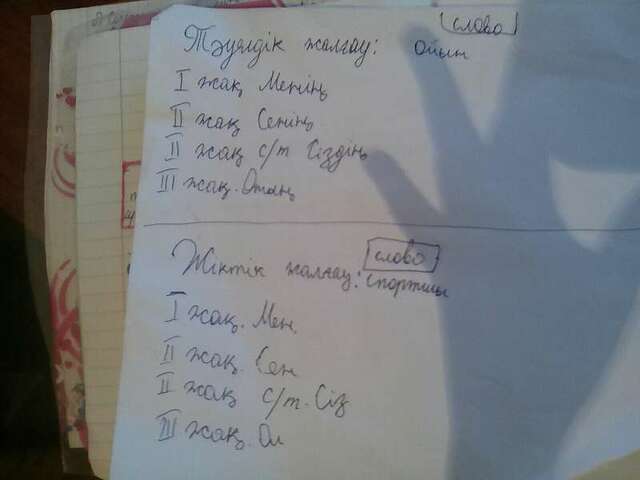 слово
Тәуелдік жалғау: ойын
I жақ Менің
II жақ Сенің
II жақ с/т Сіздің
III жақ. Оның
слово
Жіктік жалғау: спортшы
I жақ. Мен.
II жақ. Сен
II жақ с/т. Сіз
III жақ. Ол